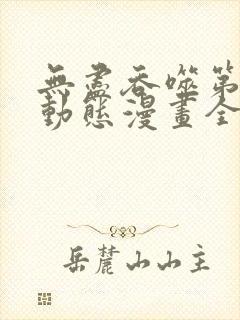 無盡吞噬第
動態漫畫全
岳麓山山主